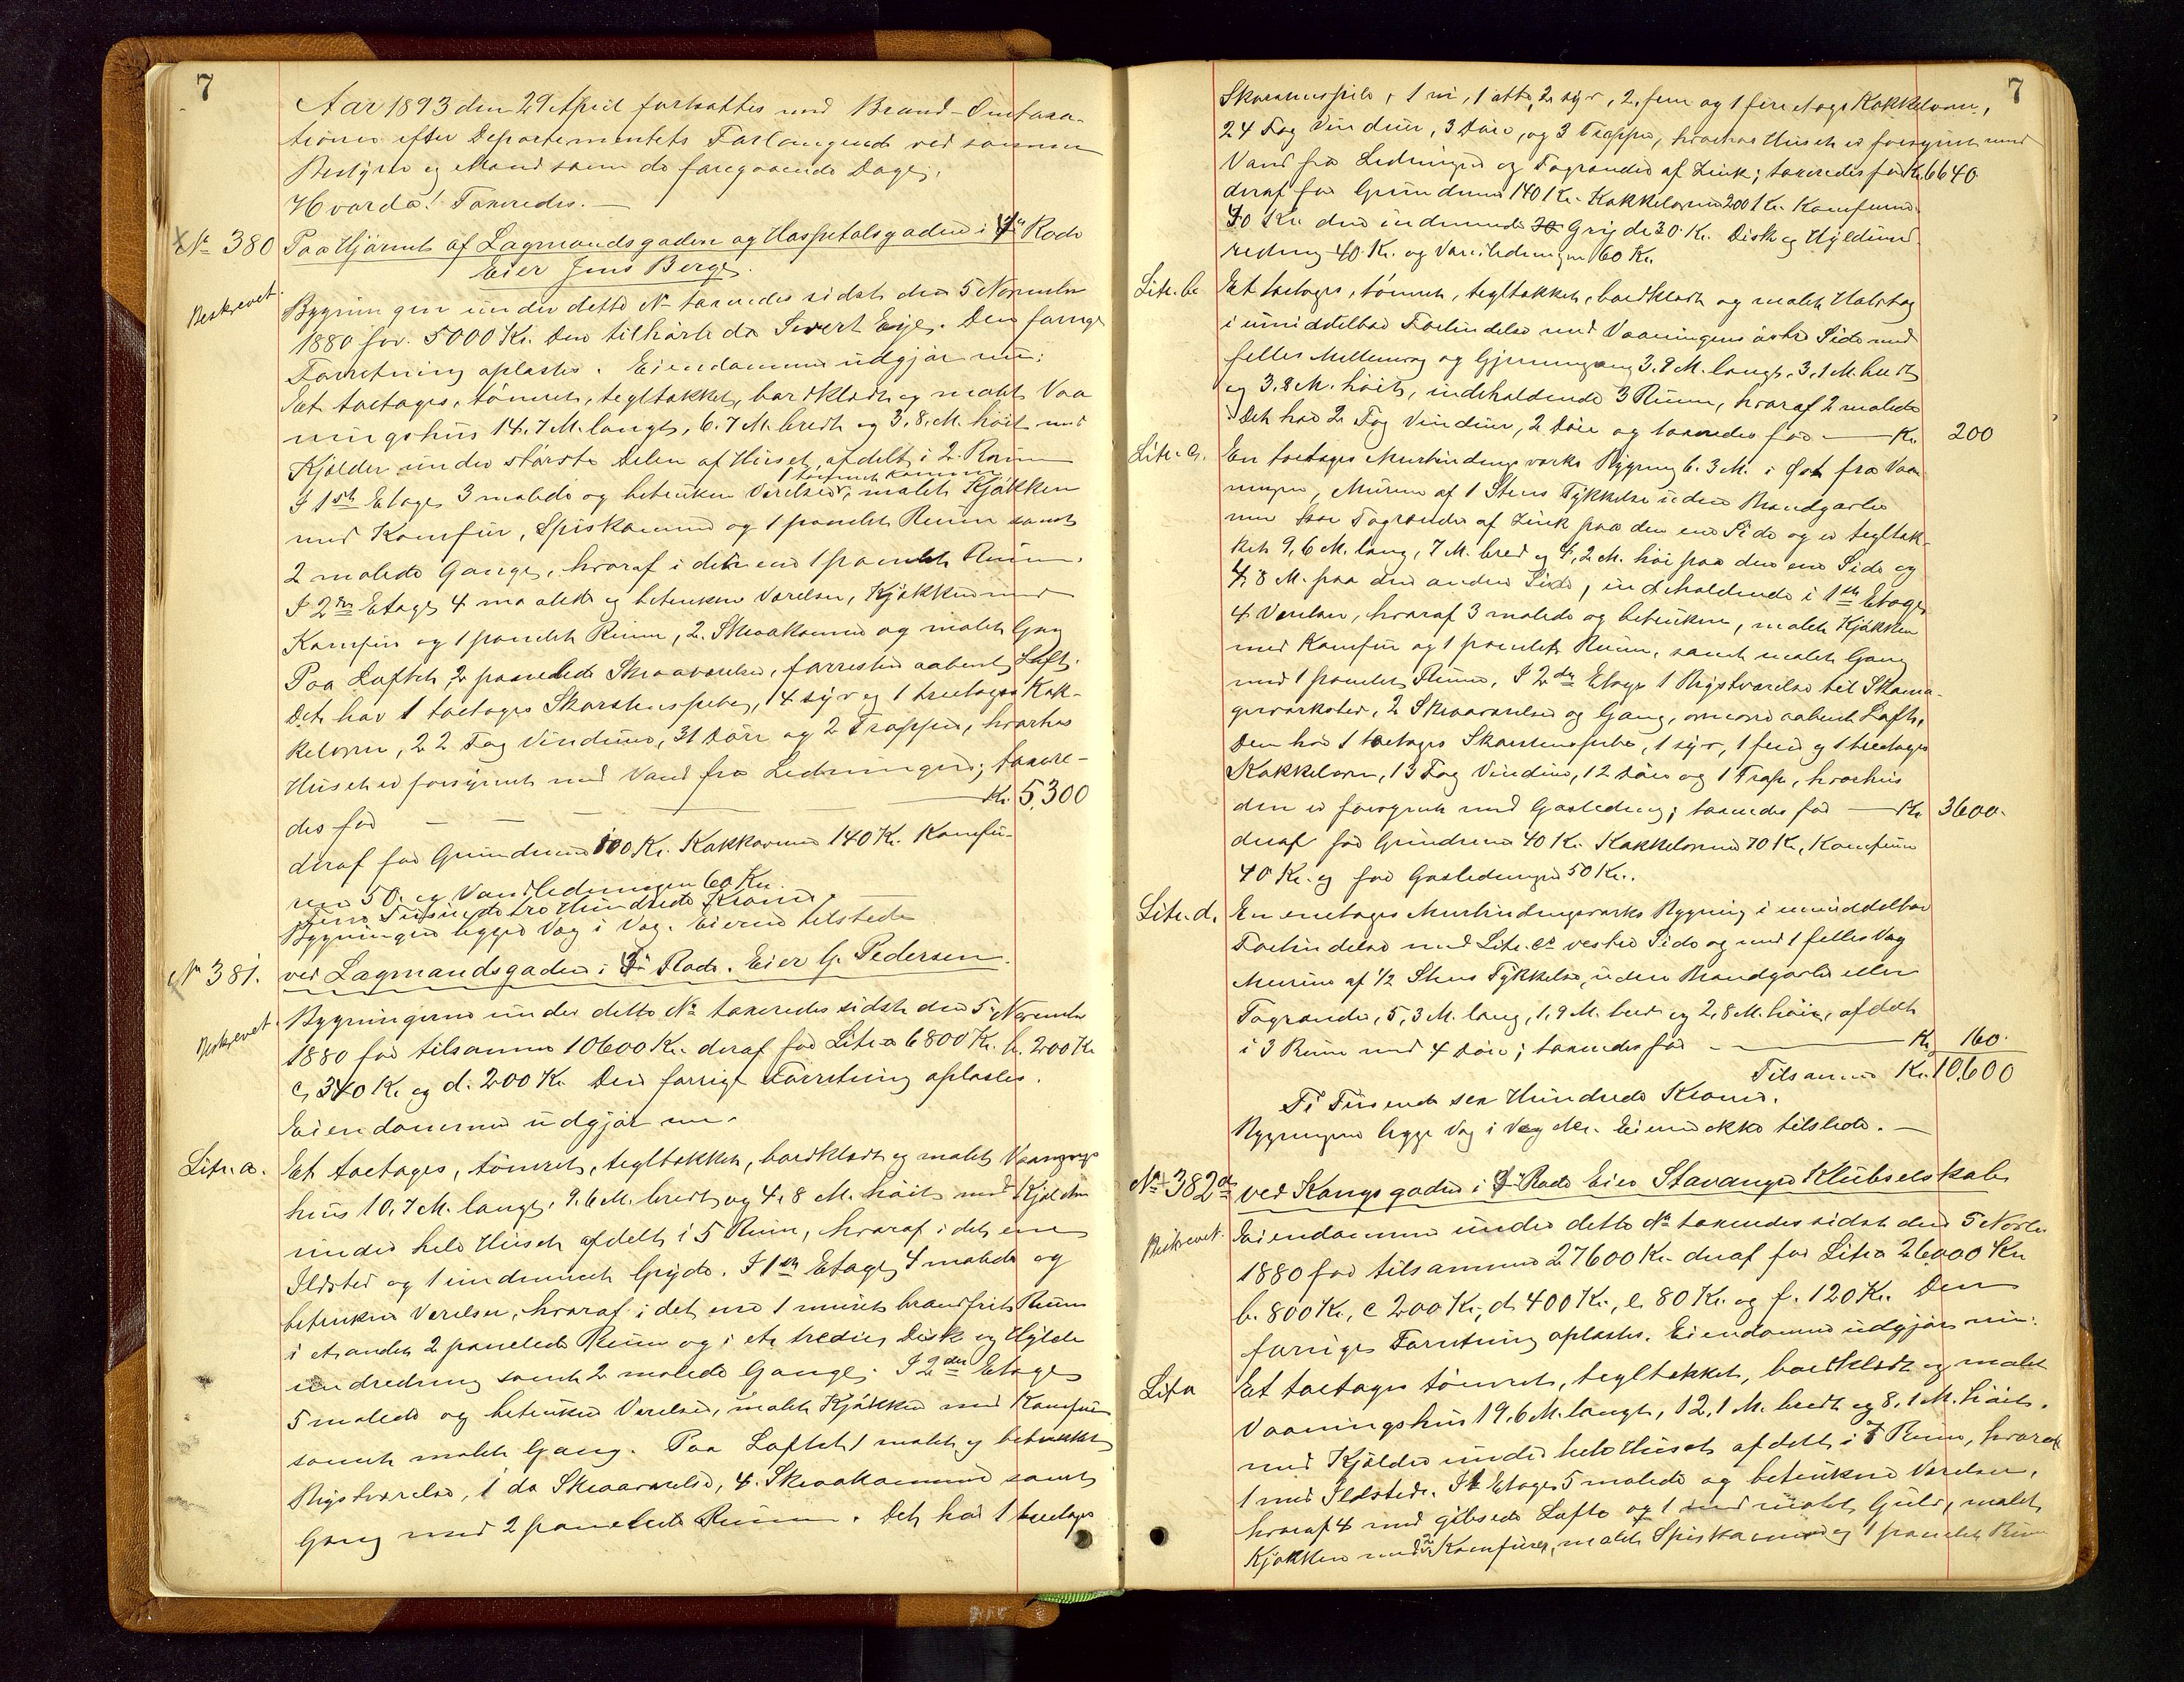 7
Aar 1893 den 29 April fortsattes med Brand-Omtaxa-
tionen efter Departementets Forlangende ved samme
Bestyrer og Mænd som de foregaaende Dage.
Hvorda! Taxeredes. —
No 380 Paa Hjørnet af Lagmandsgaden og Hospitalsgaden i 4de Rode
Eier Jens Berge.
Beskrevet.
Bygningen under dette No taxeredes sidst den 5 November
1880 for 5000 Kr. Den tilhørte da Sivert Eeje. Den forrige
Forretning oplæstes. Eiendommen udgjør nu:
Et toetages, tømret, tegltækket, bordklædt og malet Vaa
ningshus 14.7 M. langt, 6.7 M. bredt og 3,8 M. høit med
Kjælder under største Delen af Huset, afdelt i 2 Rum
1 Kammer
I 1ste Etage 3 malede og betrukne Værelser, malet Kjøkken
med Komfur, Spiskammer og 1 panelet Rum samt
2 malede Gange, hvoraf i den ene 1 panelet Rum.
I 2den Etage 4 malede og betrukne Værelser, Kjøkken med
Komfur og 1 panelet Rum, 2 Skraakammer og malet Gang
Paa Loftet 2 panelede Skraaværelser, forresten aabent Loft.
Det har 1 toetages Skorstenspibe, 14 syv og 1 treetages Kak-
kelovn, 22 Fag Vinduer, 31 Døre og 2 Trapper, hvorhos
Huset er forsynet med Vand fra Ledningen; taxere-
des for — — — Kr. 5,300
deraf for Grundmur 100 Kr. Kakkelovne 140 Kr. Komfu-
rer 50. og Vandledningen 60 Kr.
Fem Tusinde tre Hundrede Kroner.
Bygningen ligger Væg i Væg. Eieren tilstede
No 381. ved Lagmandsgaden i 4de Rode. Eier G. Pedersen.
Beskrevet.
Bygningerne under dette No taxeredes sidst den 5 November
1880 for tilsammen 10600 Kr. deraf for Litr a 6800 Kr. b, 200 Kr
c, 340 Kr og d. 200 Kr. Den forrige Forretning oplæstes.
Eiendommen udgjør nu.
Litr. a. Et toetages, tømret, tegltækket, bordklædt og malet Vaanings
hus 10,7 M. langt, 9,6 M. bredt og 4,8 M. høit med Kjælder
under hele Huset afdelt i 5 Rum, hvoraf i det ene
Ildsted og 1 indmuret Gryde. I 1ste Etage, 4 malede og
betrukne Værelser, hvoraf i det ene 1 muret brandfrit Rum
i et andet 2 panelede Rum og i et tredie, Disk og Hylde
indredning samt 2 malede Gange. I 2den Etage
5 malede og betrukne Værelser, malet Kjøkken med Komfur
samt malet Gang. Paa Loftet 1 malet og betrukket
Kvistværelse, 1 do Skraaværelse, 4 Skraakammer samt
Gang med 2 panelede Rum. Det har 1 treetages
7
Skorstenspibe, 1 ni, 1 otte, 2 syv, 2 fem og 1 fire etages Kakkelovn,
24 Fag Vinduer, 3 Døre, og 3 Trapper, hvorhos Huset er forsynet med
Vand fra Ledningen og Tagrender af Zink; taxeredes for Kr. 6640
deraf for Grundmur 140 Kr. Kakkelovne 200 Kr. Komfuren
70 Kr. den indmurede Gryde 30 Kr. Disk og Hyldeind
redning 40 Kr. og Vandledningen 60 Kr.
Litr. b. Et toetages, tømret, tegltækket, bordklædt og malet Halvtag
i umiddelbar Forbindelse med Vaaningens østre Side med
fælles Mellemvæg og Gjennemgang 3,8 M. langt, 3,1 M. bredt
og 3,8 M. høit, indeholdende 3 Rum, hvoraf 2 malede
Det har 2 Fag Vinduer, 2 Døre og taxeredes for — Kr. 200
Litr. c. En toetages Murbindingsværks Bygning 6.3 M. i Øst fra Vaa
ningen, Murene af 1 Stens Tykkelse uden Brandgavle
men har Tagrender af Zink paa den ene Side og er tegltæk-
ket 9,6 M. lang, 7 M. bred og 4,2 M. høi paa den ene Side og
4,8 M. paa den anden Side, indeholdende i 1ste Etage
4 Værelser, hvoraf 3 malede og betrukne, malet Kjøkken
med Komfur og 1 panelet Rum, samt malet Gang
med 1 panelet Rum. I 2den Etage 1 Kvistværelse til Skoma-
gerværksted, 2 Skraaværelser og Gang, ovenover aabent Loft.
Den har 1 toetages Skorstenspibe, 1 syv, 1 fem og 1 treetages
Kakkelovn, 13 Fag Vinduer, 12 Døre og 1 Trap, hvorhos
den er forsynet med Gasledning; taxeredes for — Kr 3600.
deraf for Grundmur 40 Kr. Kakkelovne 70 Kr, Komfuren
40 Kr. og for Gasledningen 50 Kr.
Litr. d, En enetages Murbindingsværks Bygning i umiddelbar
Forbindelse med Litr. cs vestre Side og med 1 fælles Væg
Murene af 1/2 Stens Tykkelse, uden Brandgavle eller
Tagrender, 5,3 M. lang, 1,9 M. bred og 2,8 M. høi, afdelt
i 3 Rum med 4 Døre; taxeredes for — Kr 160.
Tilsammen Kr. 10,600
Ti Tusende sex Hundrede Kroner.
Bygningene ligge Væg i Væg. Eieren ikke tilstede. —
No 382a ved Kongsgaden i Rode Eier Stavanger Klubselskab
Beskrevet.
Eiendommen under dette No taxeredes sidst den 5 Novbr.
1880 for tilsammen 27600 Kr. deraf for Litr a 26000 Kr
b. 800 Kr., c 200 Kr., d. 400 Kr., e. 80 Kr. og f. 120 Kr. Den
forrige Forretning oplæstes. Eiendommen udgjør nu:
Litr a Et toetages tømret, tegltækket, bordklædt og malet
Vaaningshus 19,6 M. langt, 12,1 M. bredt og 8,1 M. høit.
med Kjælder under hele Huset afdelt i 7 Rum, hvoraf
1 med Ildsted. I 1 Etage 5 malede og betrukne Værelser,
hvoraf 4 med gibsede Lofte og 1 med malet Gulv, malet
Kjøkken med 2 Komfurer, malet Spiskammer og 1 panelet Rum